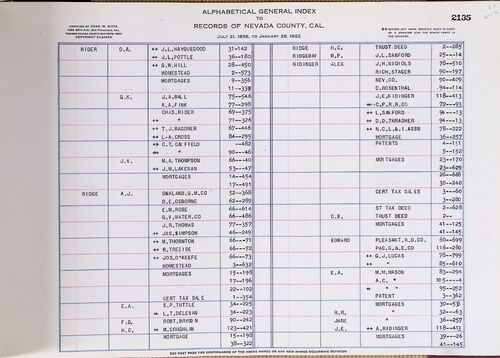 ALPHABETICAL GENERAL INDEX
TO
RECORDS OF NEVADA COUNTY, CAL.
JULY 21, 1856, TO JANUARY 26, 1922
2135
COPYRIGHT CLAIMED
RIDER D.A. ++ J.L. HAYGUEGOOD 31-142
++ J.L. POTTLE 36--180
++ G.W. HILL 28--450
HOMESTEAD 2--573
MORTGAGES 9--356
11--339
G.K. J.A. BALL 75--546
A.A. FINK 77--298
CHAS. RIDER 69--375
++ " 71--326
++ T.J. WAGONER 67--446
++ L.A. CROSS 84--295
C.T. CANFIELD --482
" 90---46
J.V. M.A. THOMPSON 66---40
++ J.W. LAKENAN 53---47
MORTGAGES 14--454
17--491
RIDGE A.J. OAKLAND G.M. CO 52--368
D.E. OSBORNE 62--289
E.M. ROSE 66--614
G.V. WATER CO 66--486
J.R. THOMAS 77--357
++ JAS. SIMPSON 46--249
++ M. THORNTON 66---71
++ R. TREZISE 66---72
++ JOS. O'KEEFE 66---73
HOMESTEAD 3--632
MORTGAGES 15--198
17--196
22--102
CERT TAX SALE 1--354
E.A. S.P. TUTTLE 34--225
++ L.T. DELEVAN 34--223
F.D. ROBT. BRYDON 90--242
H.C. ++ M. COUGHLAN 123--421
MORTGAGE 15--198
38--322
RIDGE H.G. TRUST DEED 2--285
RIDGEWAY W.P. J.L. SANFORD 25---14
RIDINGER ALEX J.H. NICHOLS 78--510
RICH. STAGER 90--197
NEV. CO. 90--409
C. ROSENTHAL 94--114
J.E. RIDINGER 118--413
C.P.R.R. CO 72---93
++ L. SANFORD 94---13
++ D.D. THRASHER 94---13
++ N.C.L. & I. ASSN 78--222
MORTGAGE 36--257
PATENTS 4--151
5--152
MORTGAGES 23--170
23--629
26--668
30--240
CERT TAX SALES 3---60
3--280
ST TAX DEED 2--628
C.B. TRUST DEED 2--
MORTGAGES 41--125
41--145
EDWARD PLEASANT H.D. CO. 80--699
PAC. G. & E. CO 116--280
++ G.J. LUCAS 78--799
++ " 85--610
E.A. M.M. MASON 83--294
A.C. " "
" 95--252
PATENT 3--362
MORTGAGES
H.R. " 32---63
JANE " 36--257
J.E. ++ A. RIDINGER 118--413
MORTGAGES 39---26
41--145
SEE NEXT PAGE FOR CONTINUANCE OF THE ABOVE NAMES OR ANY NEW NAMES OCCURRING BETWEEN